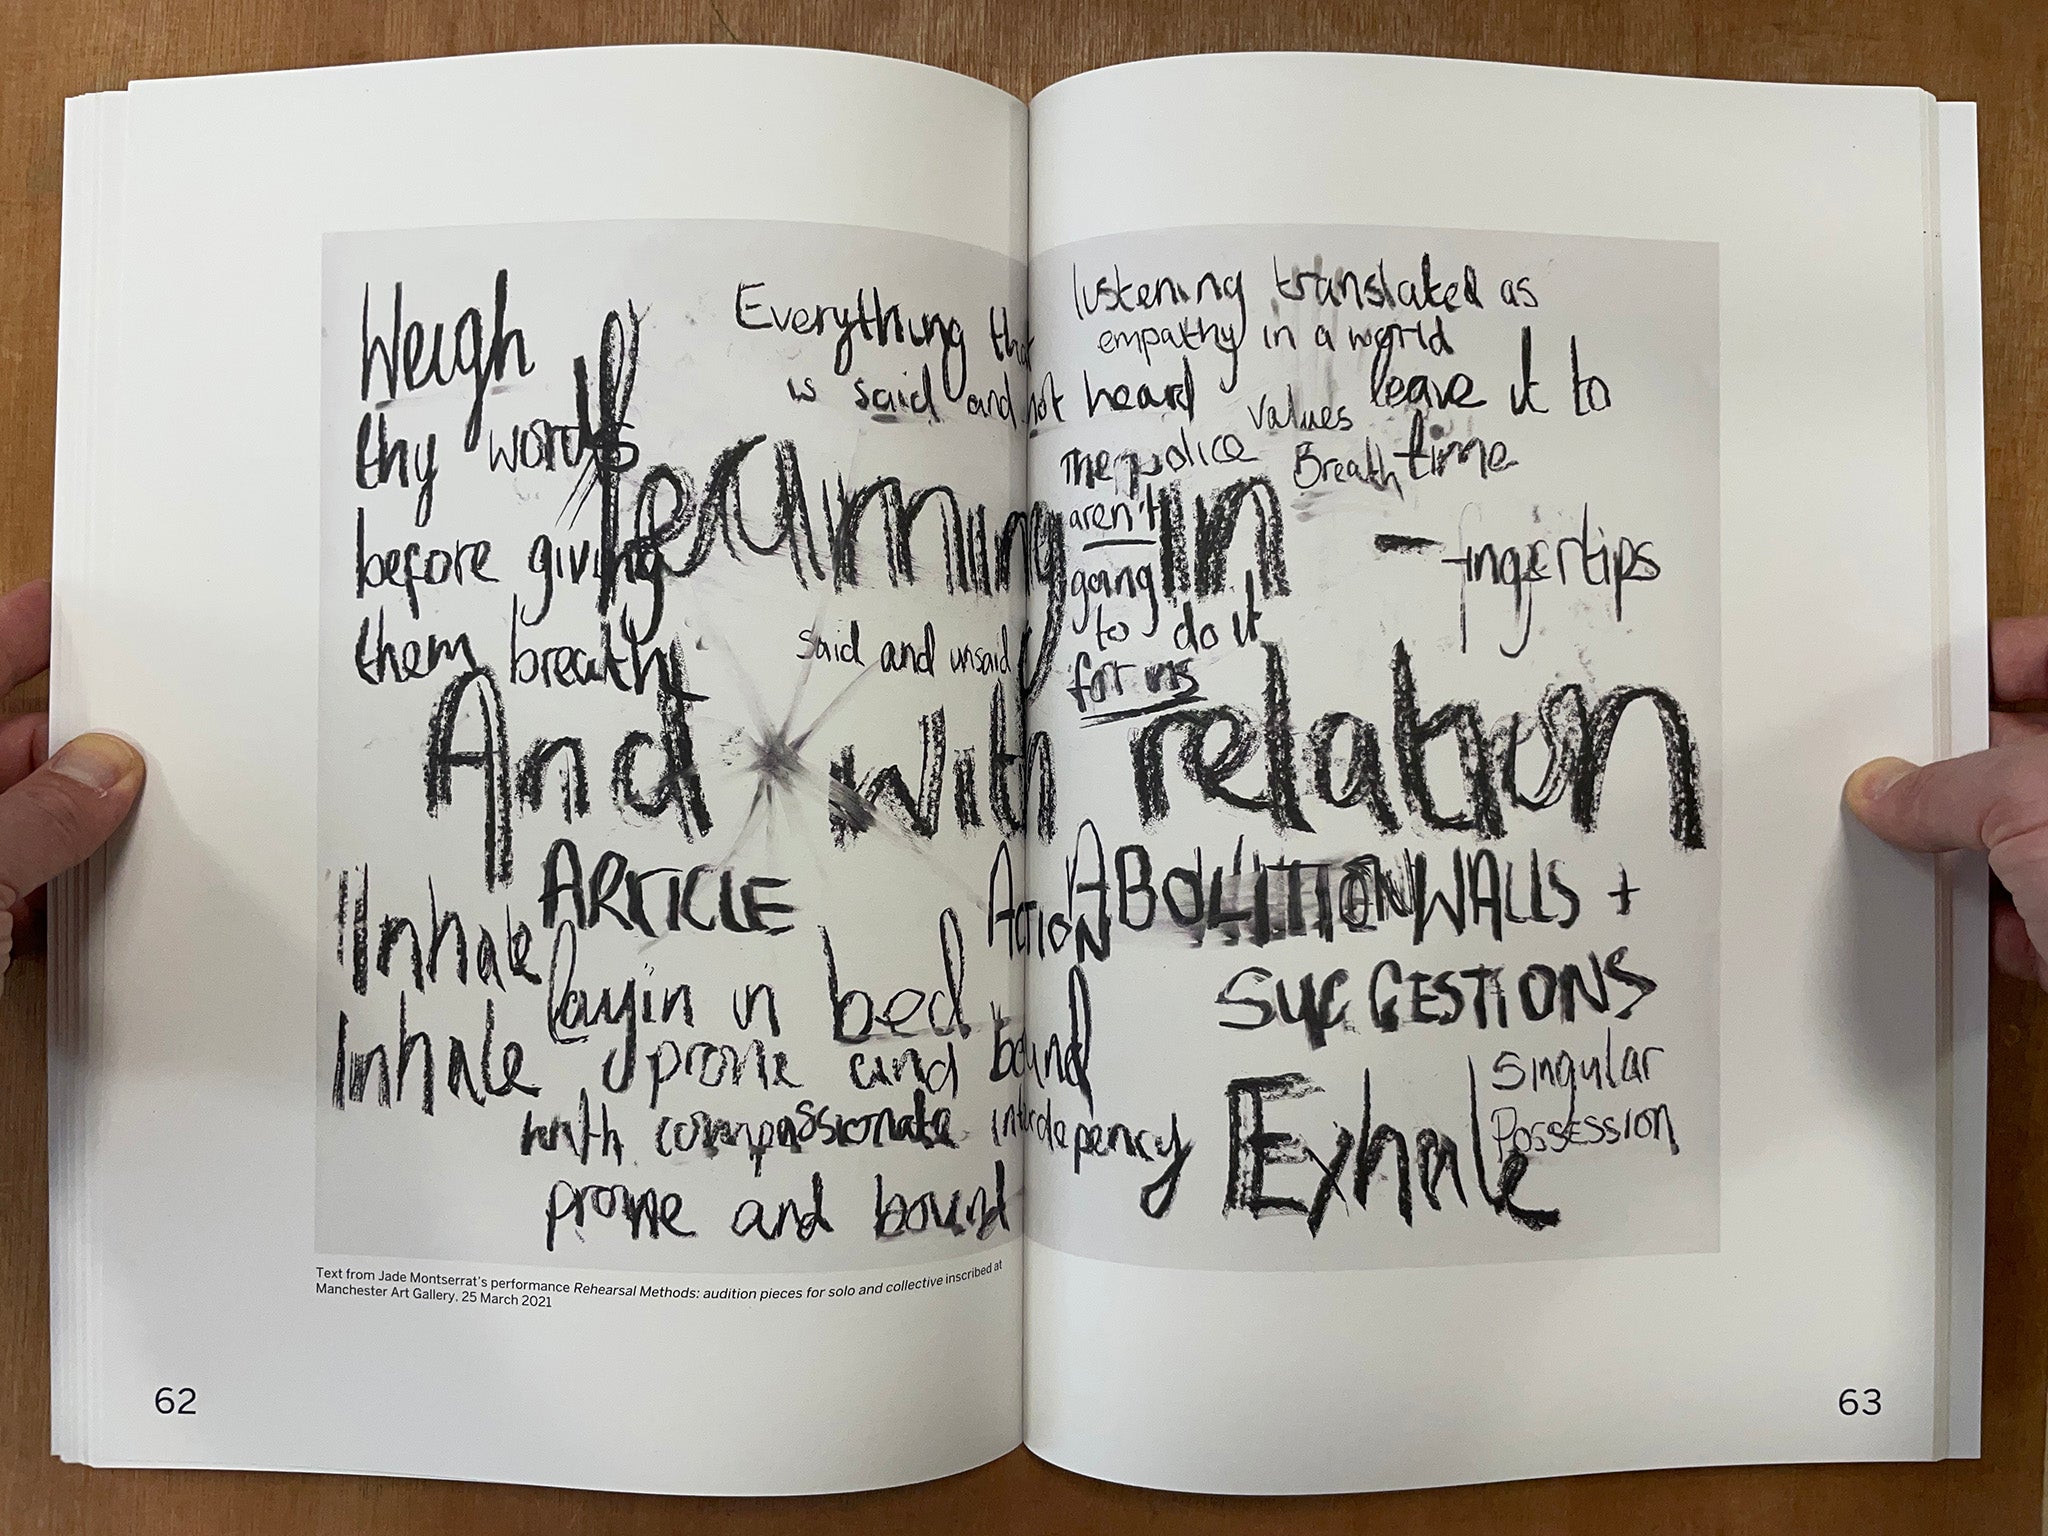 Weigh
thy words
before giving
them breath
Everything that
is said and not heard
listening translated as
empathy in a world
values
leave it to
time
Breath
the police
aren't
going
to do it
for us
learning in
- fingertips
said and unsaid
And with relation
ARTICLE
ACTION
ABOLITION WALLS +
SUGGESTIONS
Inhale
Inhale
layin in bed
prone and bound
with compassionate interdepency
prone and bound
Exhale
Singular
Possession
Text from Jade Montserrat's performance Rehearsal Methods: audition pieces for solo and collective inscribed at
Manchester Art Gallery, 25 March 2021
62
63